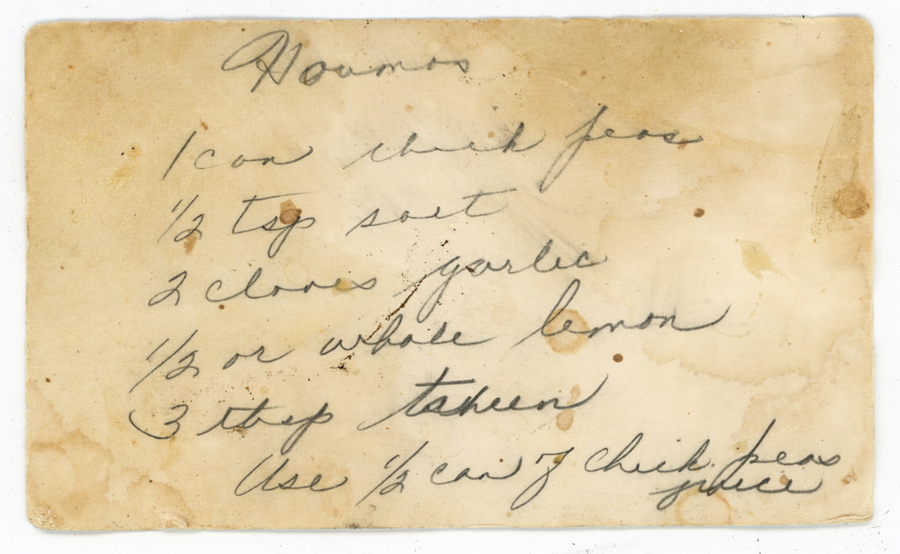 Houmos
1 can chick peas
1/2 tsp salt
2 cloves garlic
1/2 or whole lemon
3 tbsp taheen
Use 1/2 can of chick peas
juice